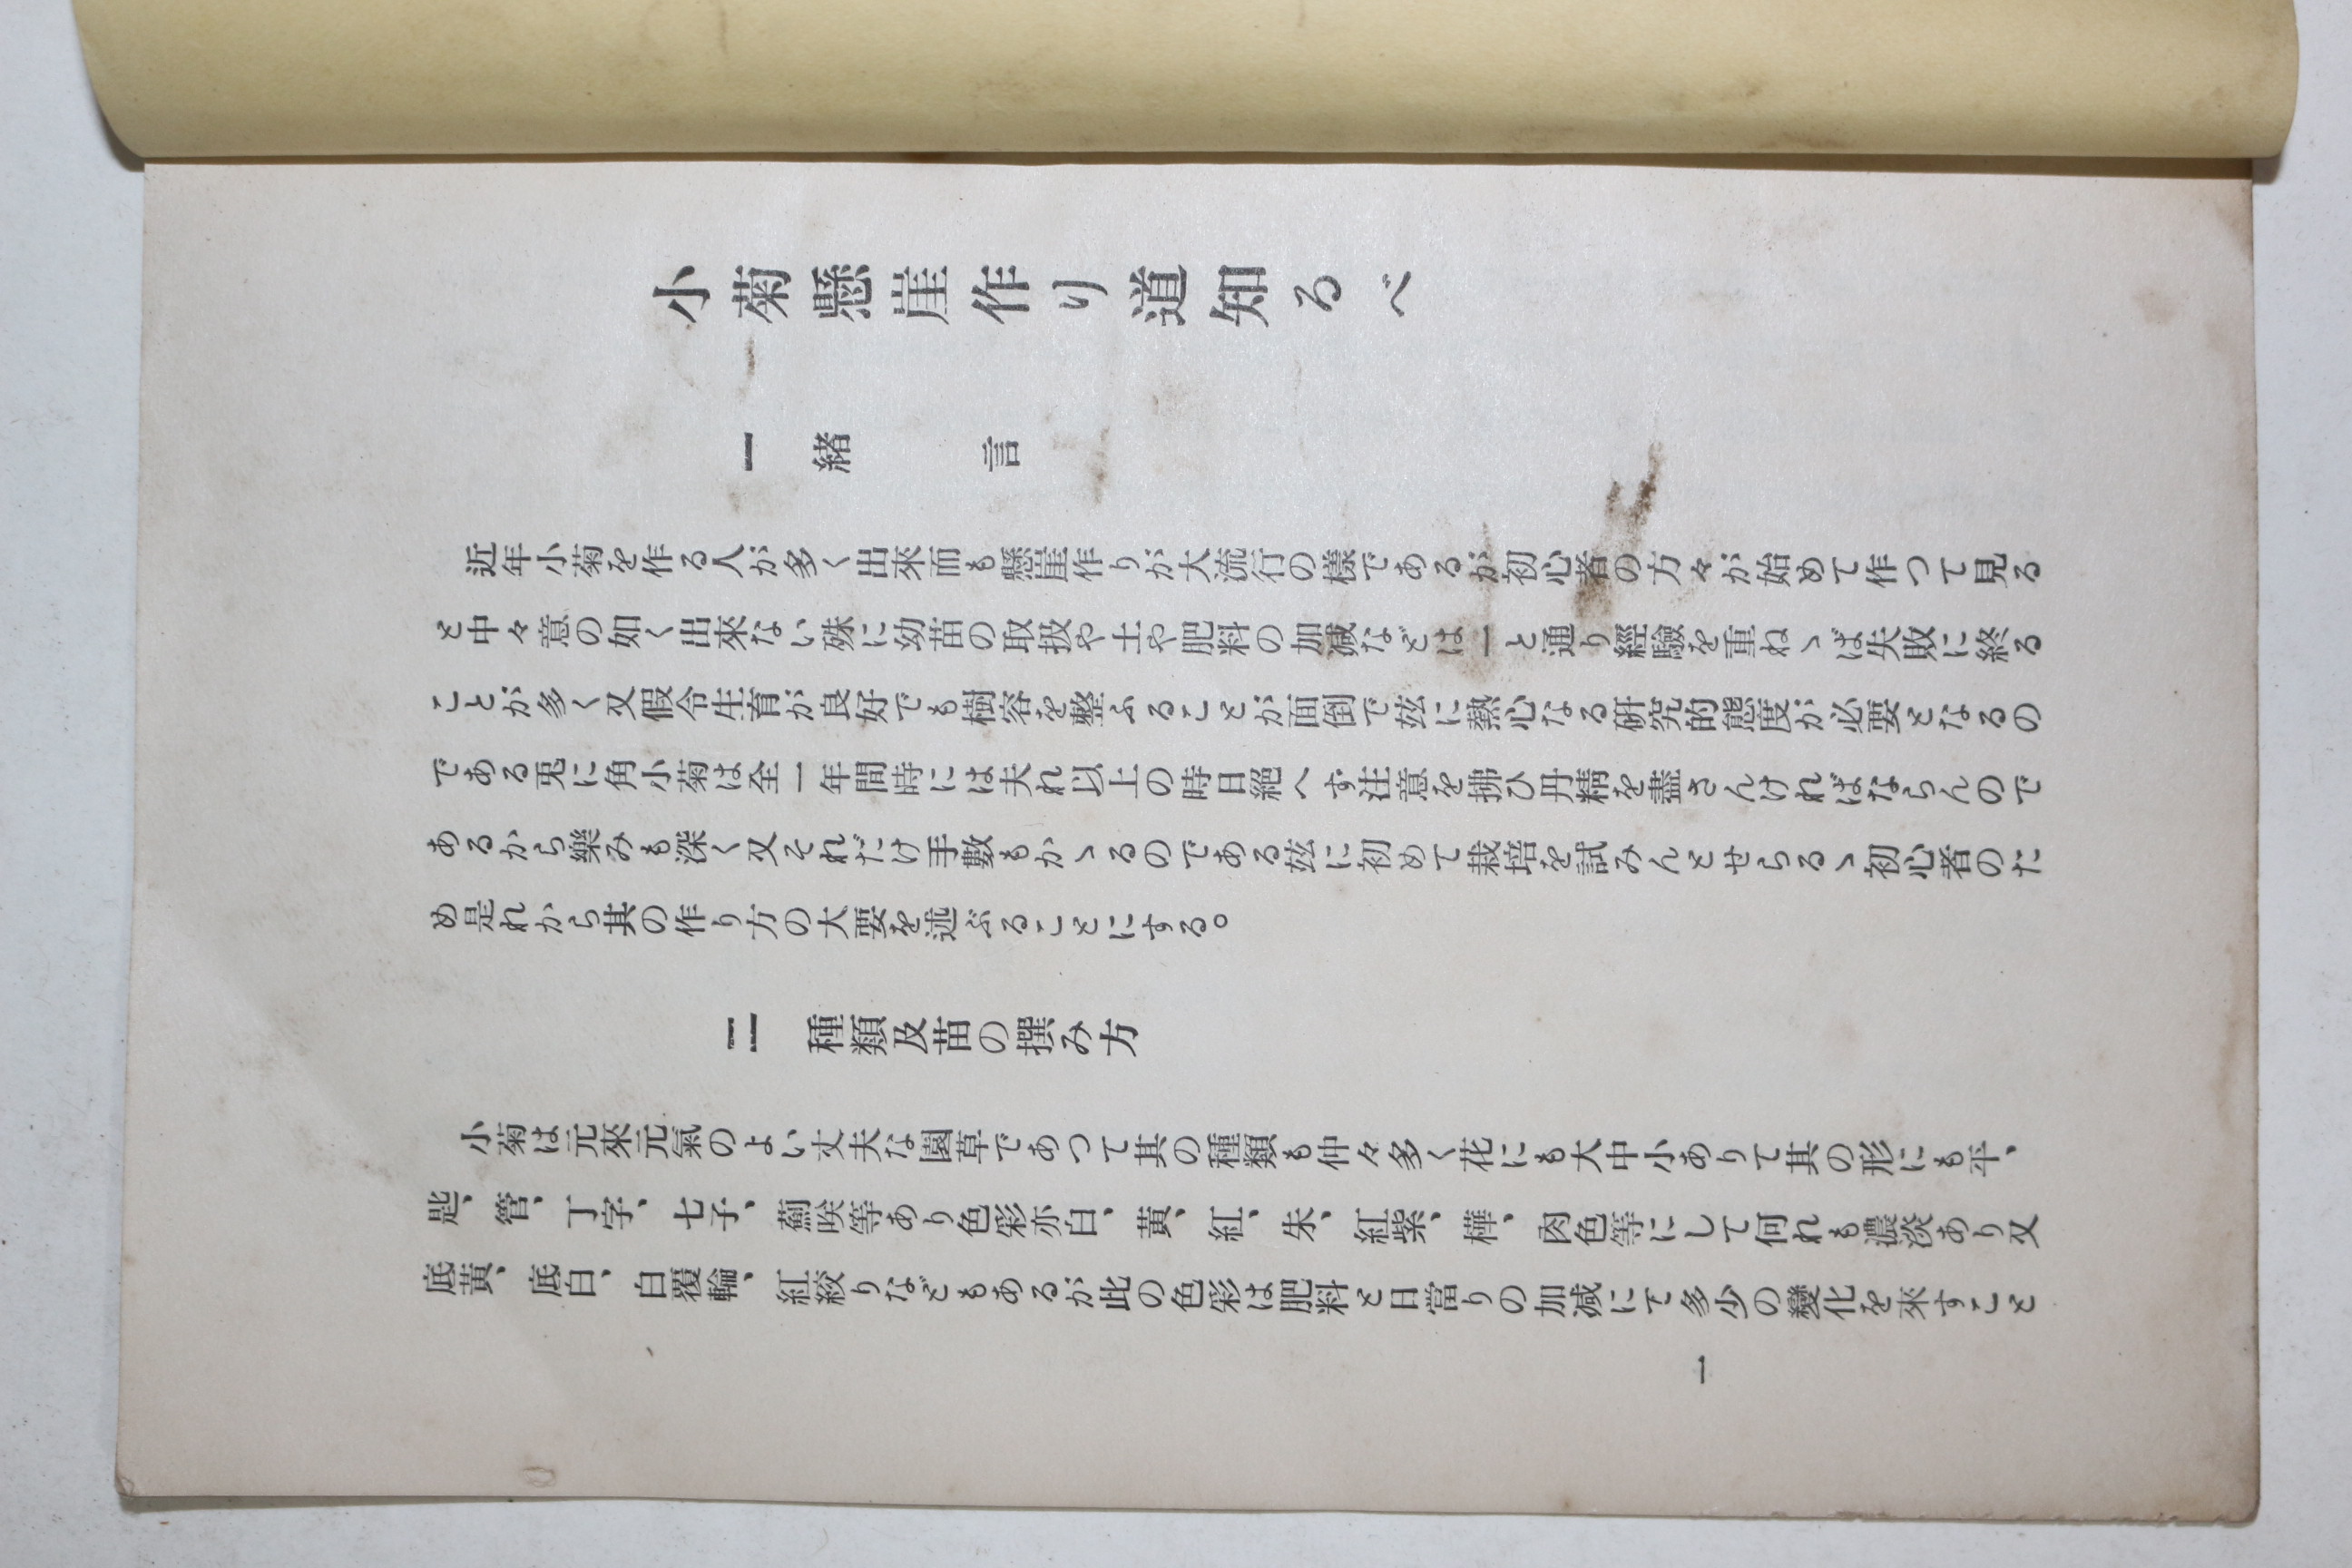 小菊懸崖作り道知るべ
一 緒言
近年小菊を作る人が多く出來而も懸崖作りが大流行の樣であるが初心者の方々が始めて作つて見る
と中々意の如く出來ない殊に幼苗の取扱や土や肥料の加減などは一と通り經驗を重ねゝば失敗に終る
ことが多く又假令生育が良好でも樹容を整ふることが面倒で玆に熱心なる硏究的態度が必要となるの
である兎に角小菊は全一年間時には夫れ以上の時日絕へず注意を拂ひ丹精を盡さんければならんので
あるから樂みも深く又それだけ手數もかゝるのである玆に初めて栽培を試みんとせらるゝ初心者のた
め是れから其の作り方の大要を述ぶることにする。
二 種類及苗の撰み方
小菊は元來元氣のよい丈夫な園草であつて其の種類も仲々多く花にも大中小ありて其の形にも平、
匙、管、丁字、七子、薊咲等あり色彩亦白、黃、紅、朱、紅紫、樺、肉色等にして何れも濃淡あり又
底黃、底白、白覆輪、紅絞りなどもあるが此の色彩は肥料と日當りの加減にて多少の變化を來すこと
一